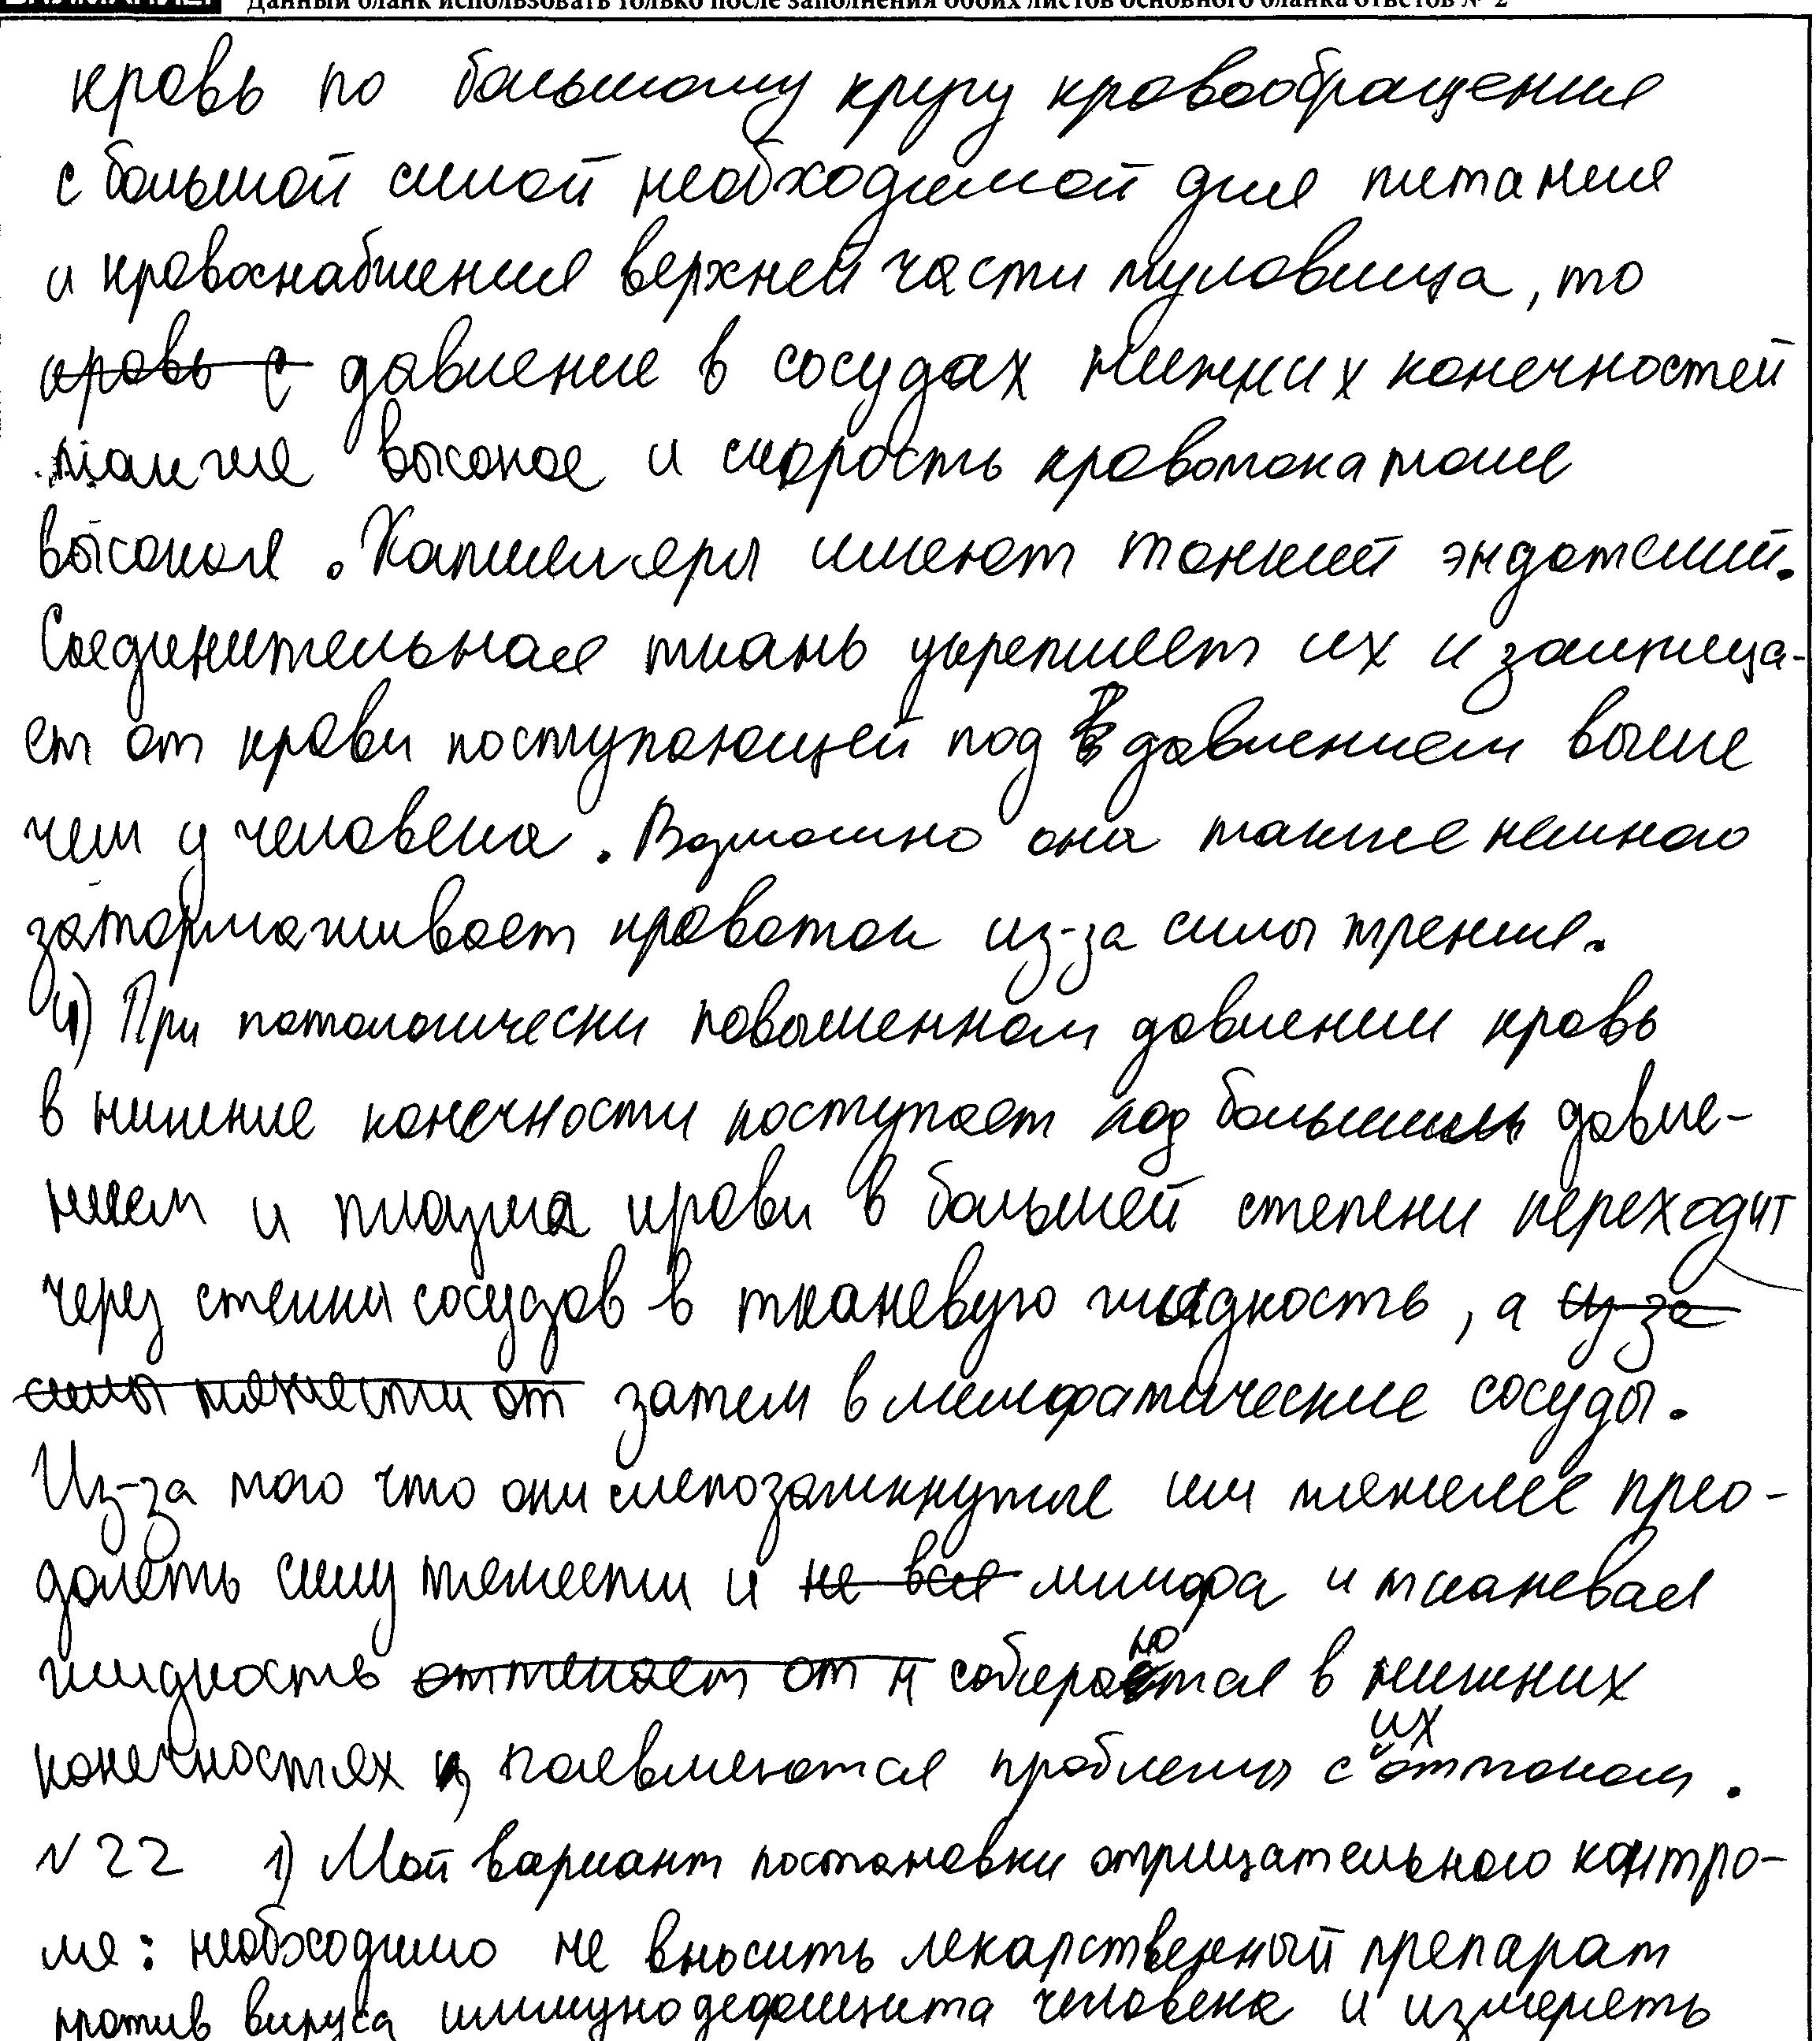 Данный бланк использовать только после заполнения обоих листов основного бланка ответов № 2
кровь по большому кругу кровообращения
с большой силой необходимой для питания
и кровоснабжения верхней части туловища, то
кровь с давление в сосудах нижних конечностей
также высокое и скорость кровотока тоже
высокая. Капилляры имеют тонкий эндотелий.
Соединительная ткань укрепляет их и защища-
ет от крови поступающей под давлением выше
чем у человека. Возможно она также немного
затормаживает кровоток из-за силы трения.
4) При патологически повышенном давлении кровь
в нижние конечности поступает под большим давле-
нием и плазма крови в большей степени переходит
через стенки сосудов в тканевую жидкость, а из-за
силы тяжести от затем в лимфатические сосуды.
Из-за того что они слепозамкнутые им тяжелее прео-
долеть силу тяжести и не вся лимфа и тканевая
жидкость оттекает от н собираются в нижних
конечностях и появляются проблемы с их оттоком.
№22 1) Мой вариант постановки отрицательного контро-
ля: необходимо не вносить лекарственный препарат
против вируса иммунодефицита человека и измерять